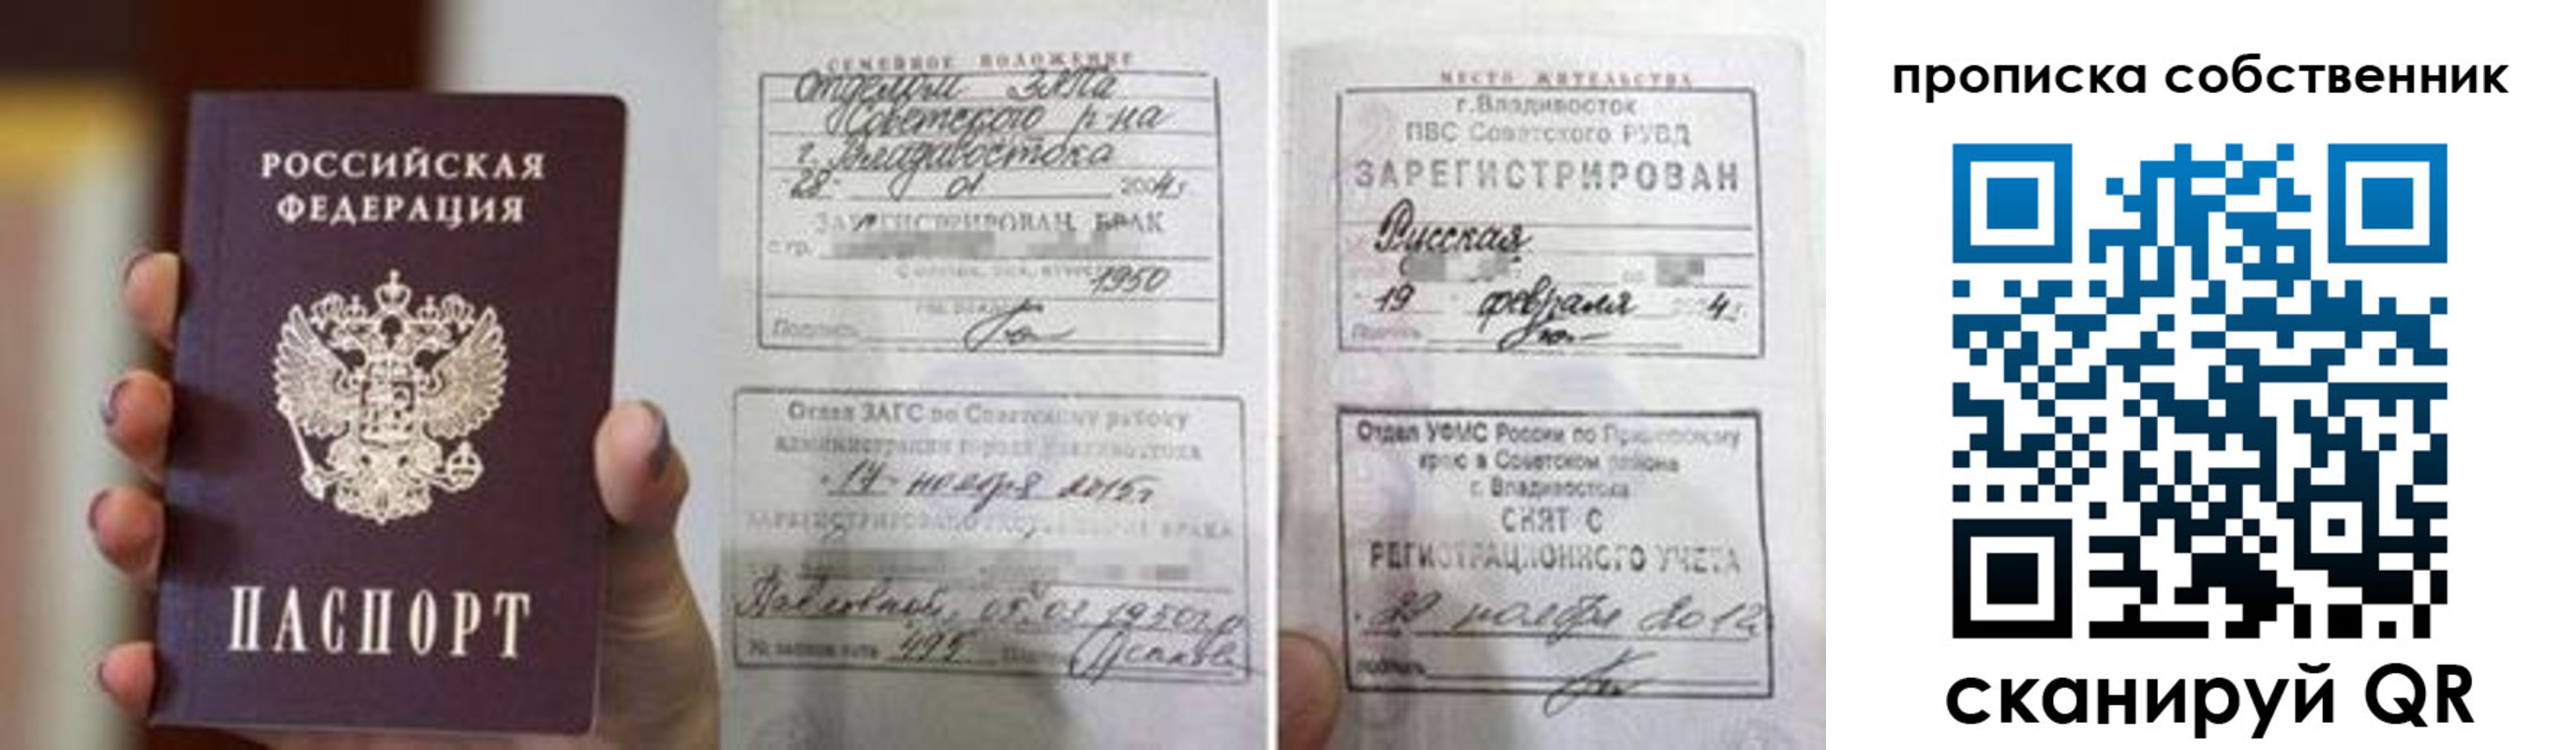 РОССИЙСКАЯ
ФЕДЕРАЦИЯ
ПАСПОРТ
СЕМЕЙНОЕ ПОЛОЖЕНИЕ
Отделом ЗАГСа
Советского р-на
г. Владивостока
"28" 01 2004 г.
ЗАРЕГИСТРИРОВАН БРАК
с гр.
1950
Подпись
Отдел ЗАГС по Советскому району
администрации города Владивостока
"17" ноября 2015г
БРАКА
Павловной, 05.03.1950г.р
495
МЕСТО ЖИТЕЛЬСТВА
г.Владивосток
ПВС Советского РУВД
ЗАРЕГИСТРИРОВАН
Русская
19 февраля 4г.
Подпись
Отдел УФМС России по Приморскому
краю в Советском районе
г. Владивостока
СНЯТ С
РЕГИСТРАЦИОННОГО УЧЕТА
ноября 2012
подпись
прописка собственник
сканируй QR